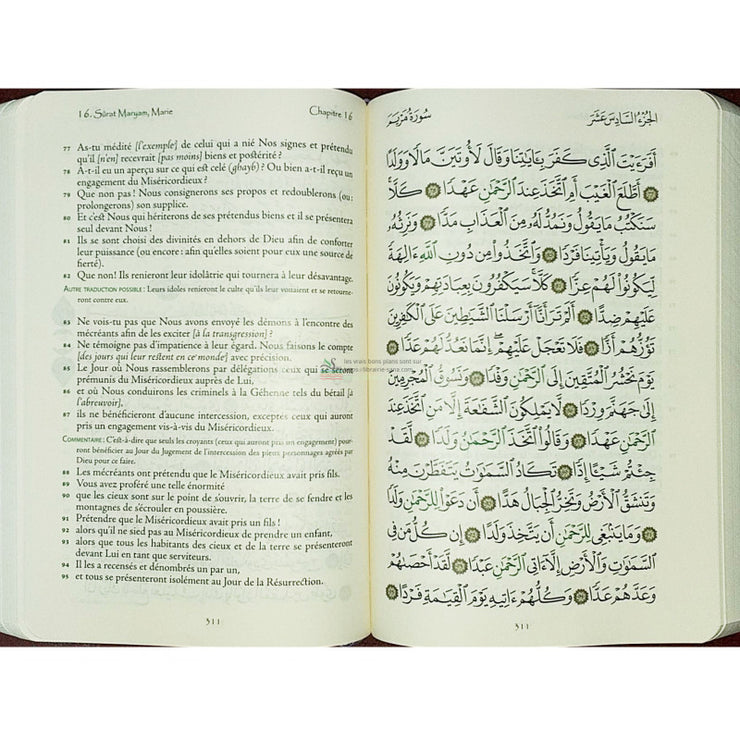 16. Sûrat Maryam, Marie
Chapitre 16
77 As-tu médité [l'exemple] de celui qui a nié Nos signes et prétendu
qu'il [n'en] recevrait [pas moins] biens et postérité ?
78 A-t-il eu un aperçu sur ce qui est celé (ghayb) ? Ou bien a-t-il reçu un
engagement du Miséricordieux ?
79 Que non pas ! Nous consignerons ses propos et redoublerons (ou :
prolongerons) son supplice.
80 Et c'est Nous qui hériterons de ses prétendus biens et il se présentera
seul devant Nous !
81 Ils se sont choisi des divinités en dehors de Dieu afin de conforter
leur puissance (ou encore : afin qu'elles soient pour eux une source de
fierté).
82 Que non! Ils renieront leur idolâtrie qui tournera à leur désavantage.
Autre traduction possible : Leurs idoles renieront le culte qu'ils leur vouaient et se retourne-
ront contre eux.
83 Ne vois-tu pas que Nous avons envoyé les démons à l'encontre des
mécréants afin de les exciter [à la transgression] ?
84 Ne témoigne pas d'impatience à leur égard. Nous faisons le compte
[des jours qui leur restent en ce monde] avec précision.
85 Le Jour où Nous rassemblerons par délégations ceux qui se seront
prémunis du Miséricordieux auprès de Lui,
86 et où Nous conduirons les criminels à la Géhenne tels du bétail [à
l'abreuvoir],
87 ils ne bénéficieront d'aucune intercession, exceptés ceux qui auront
pris un engagement vis-à-vis du Miséricordieux.
Commentaire : C'est-à-dire que seuls les croyants (ceux qui auront pris un engagement) pour-
ront bénéficier au Jour du Jugement de l'intercession des pieux personnages agréés par
Dieu pour ce faire.
88 Les mécréants ont prétendu que le Miséricordieux avait pris fils.
89 Vous avez proféré une telle énormité
90 que les cieux sont sur le point de s'ouvrir, la terre de se fendre et les
montagnes de s'écrouler en poussière.
91 Prétendre que le Miséricordieux avait pris un fils !
92 alors qu'il ne sied pas au Miséricordieux de prendre un enfant,
93 alors que tous les habitants des cieux et de la terre se présenteront
devant Lui en tant que serviteurs.
94 Il les a recensés et dénombrés un par un,
95 et tous se présenteront isolément au Jour de la Résurrection.
311
les vrais bons plans sont sur
الجزء السادس عشر
سورة مريم
أَفَرَءَيْتَ ٱلَّذِى كَفَرَ بِـَٔايَٰتِنَا وَقَالَ لَأُوتَيَنَّ مَالًا وَوَلَدًا
٧٧ أَطَّلَعَ ٱلْغَيْبَ أَمِ ٱتَّخَذَ عِندَ ٱلرَّحْمَٰنِ عَهْدًا ٧٨ كَلَّا
سَنَكْتُبُ مَا يَقُولُ وَنَمُدُّ لَهُۥ مِنَ ٱلْعَذَابِ مَدًّا ٧٩ وَنَرِثُهُۥ
مَا يَقُولُ وَيَأْتِينَا فَرْدًا ٨٠ وَٱتَّخَذُوا۟ مِن دُونِ ٱللَّهِ ءَالِهَةً
لِّيَكُونُوا۟ لَهُمْ عِزًّا ٨١ كَلَّا سَيَكْفُرُونَ بِعِبَادَتِهِمْ وَيَكُونُونَ
عَلَيْهِمْ ضِدًّا ٨٢ أَلَمْ تَرَ أَنَّآ أَرْسَلْنَا ٱلشَّيَٰطِينَ عَلَى ٱلْكَٰفِرِينَ
تَؤُزُّهُمْ أَزًّا ٨٣ فَلَا تَعْجَلْ عَلَيْهِمْ إِنَّمَا نَعُدُّ لَهُمْ عَدًّا ٨٤
يَوْمَ نَحْشُرُ ٱلْمُتَّقِينَ إِلَى ٱلرَّحْمَٰنِ وَفْدًا ٨٥ وَنَسُوقُ ٱلْمُجْرِمِينَ
إِلَىٰ جَهَنَّمَ وِرْدًا ٨٦ لَّا يَمْلِكُونَ ٱلشَّفَٰعَةَ إِلَّا مَنِ ٱتَّخَذَ عِندَ
ٱلرَّحْمَٰنِ عَهْدًا ٨٧ وَقَالُوا۟ ٱتَّخَذَ ٱلرَّحْمَٰنُ وَلَدًا ٨٨ لَّقَدْ
جِئْتُمْ شَيْـًٔا إِدًّا ٨٩ تَكَادُ ٱلسَّمَٰوَٰتُ يَتَفَطَّرْنَ مِنْهُ
وَتَنشَقُّ ٱلْأَرْضُ وَتَخِرُّ ٱلْجِبَالُ هَدًّا ٩٠ أَن دَعَوْا۟ لِلرَّحْمَٰنِ وَلَدًا
٩١ وَمَا يَنۢبَغِى لِلرَّحْمَٰنِ أَن يَتَّخِذَ وَلَدًا ٩٢ إِن كُلُّ مَن فِى
ٱلسَّمَٰوَٰتِ وَٱلْأَرْضِ إِلَّآ ءَاتِى ٱلرَّحْمَٰنِ عَبْدًا ٩٣ لَّقَدْ أَحْصَىٰهُمْ
وَعَدَّهُمْ عَدًّا ٩٤ وَكُلُّهُمْ ءَاتِيهِ يَوْمَ ٱلْقِيَٰمَةِ فَرْدًا ٩٥
311